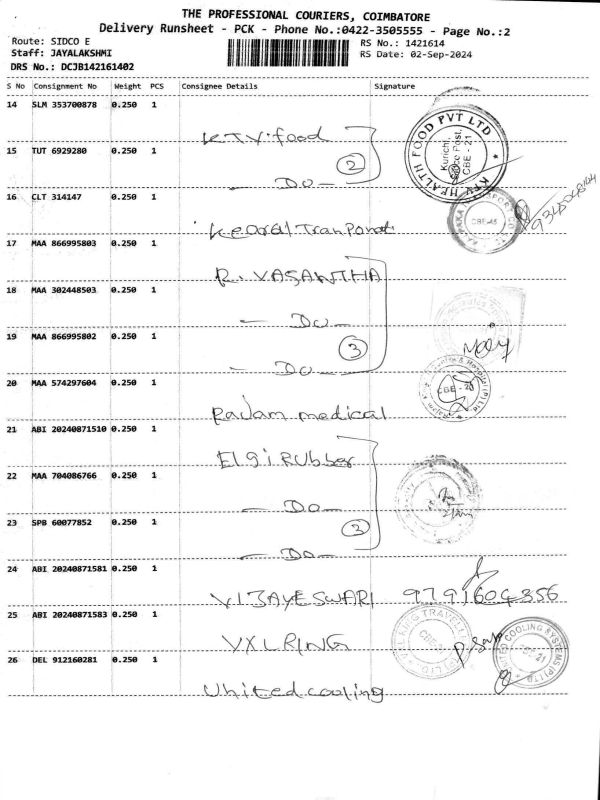 THE PROFESSIONAL COURIERS, COIMBATORE
Delivery Runsheet - PCK - Phone No.:0422-3505555 - Page No.:2
Route: SIDCO E
Staff: JAYALAKSHMI
DRS No.: DCJB142161402
RS No.: 1421614
RS Date: 02-Sep-2024
S No Consignment No Weight PCS Consignee Details Signature
14 SLM 353700878 0.250 1
KTV food
KTV HEALTH FOOD PVT LTD
Kurichi,
CBE - 21
15 TUT 6929280 0.250 1
2
— Do —
16 CLT 314147 0.250 1
CBE-45
17 MAA 866995803 0.250 1
R. VASANTHA
18 MAA 302448503 0.250 1
— Do —
19 MAA 866995802 0.250 1
3
— Do —
20 MAA 574297604 0.250 1
CBE - 21
Rajam medical
21 ABI 20240871510 0.250 1
Elgi Rubber
22 MAA 704086766 0.250 1
— Do —
23 SPB 60077852 0.250 1
3
— Do —
24 ABI 20240871581 0.250 1
VIJAYESWARI 9791604356
25 ABI 20240871583 0.250 1
VXL RING
26 DEL 912160281 0.250 1
UNITED COOLING SYSTEMS (P) LTD
United cooling